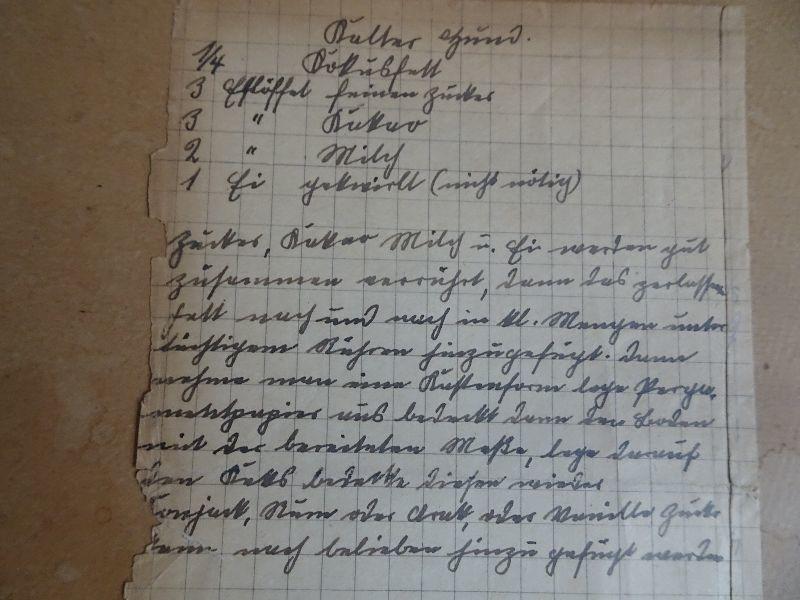 Kalter Hund.
1/4 Kokusfett
3 Eßlöffel feinen Zucker
3 " Kakao
2 " Milch
1 Ei gekwirlt (nicht nötig)
Zucker, Kakao Milch u. Ei werden gut
zusammen verrührt, dann das zerlassene
Fett nach und nach in kl. Mengen unter
tüchtigem Rühren hinzugefügt. Dann
nehme man eine Kastenform lege Perga-
mentpapier aus bedeckt dann den Boden
mit der bereiteten Maße, lege darauf
den Keks bedekke diesen wieder
Conjack, Rum oder Arak, oder Vanille Zucker
kann nach belieben hinzu gefügt werden